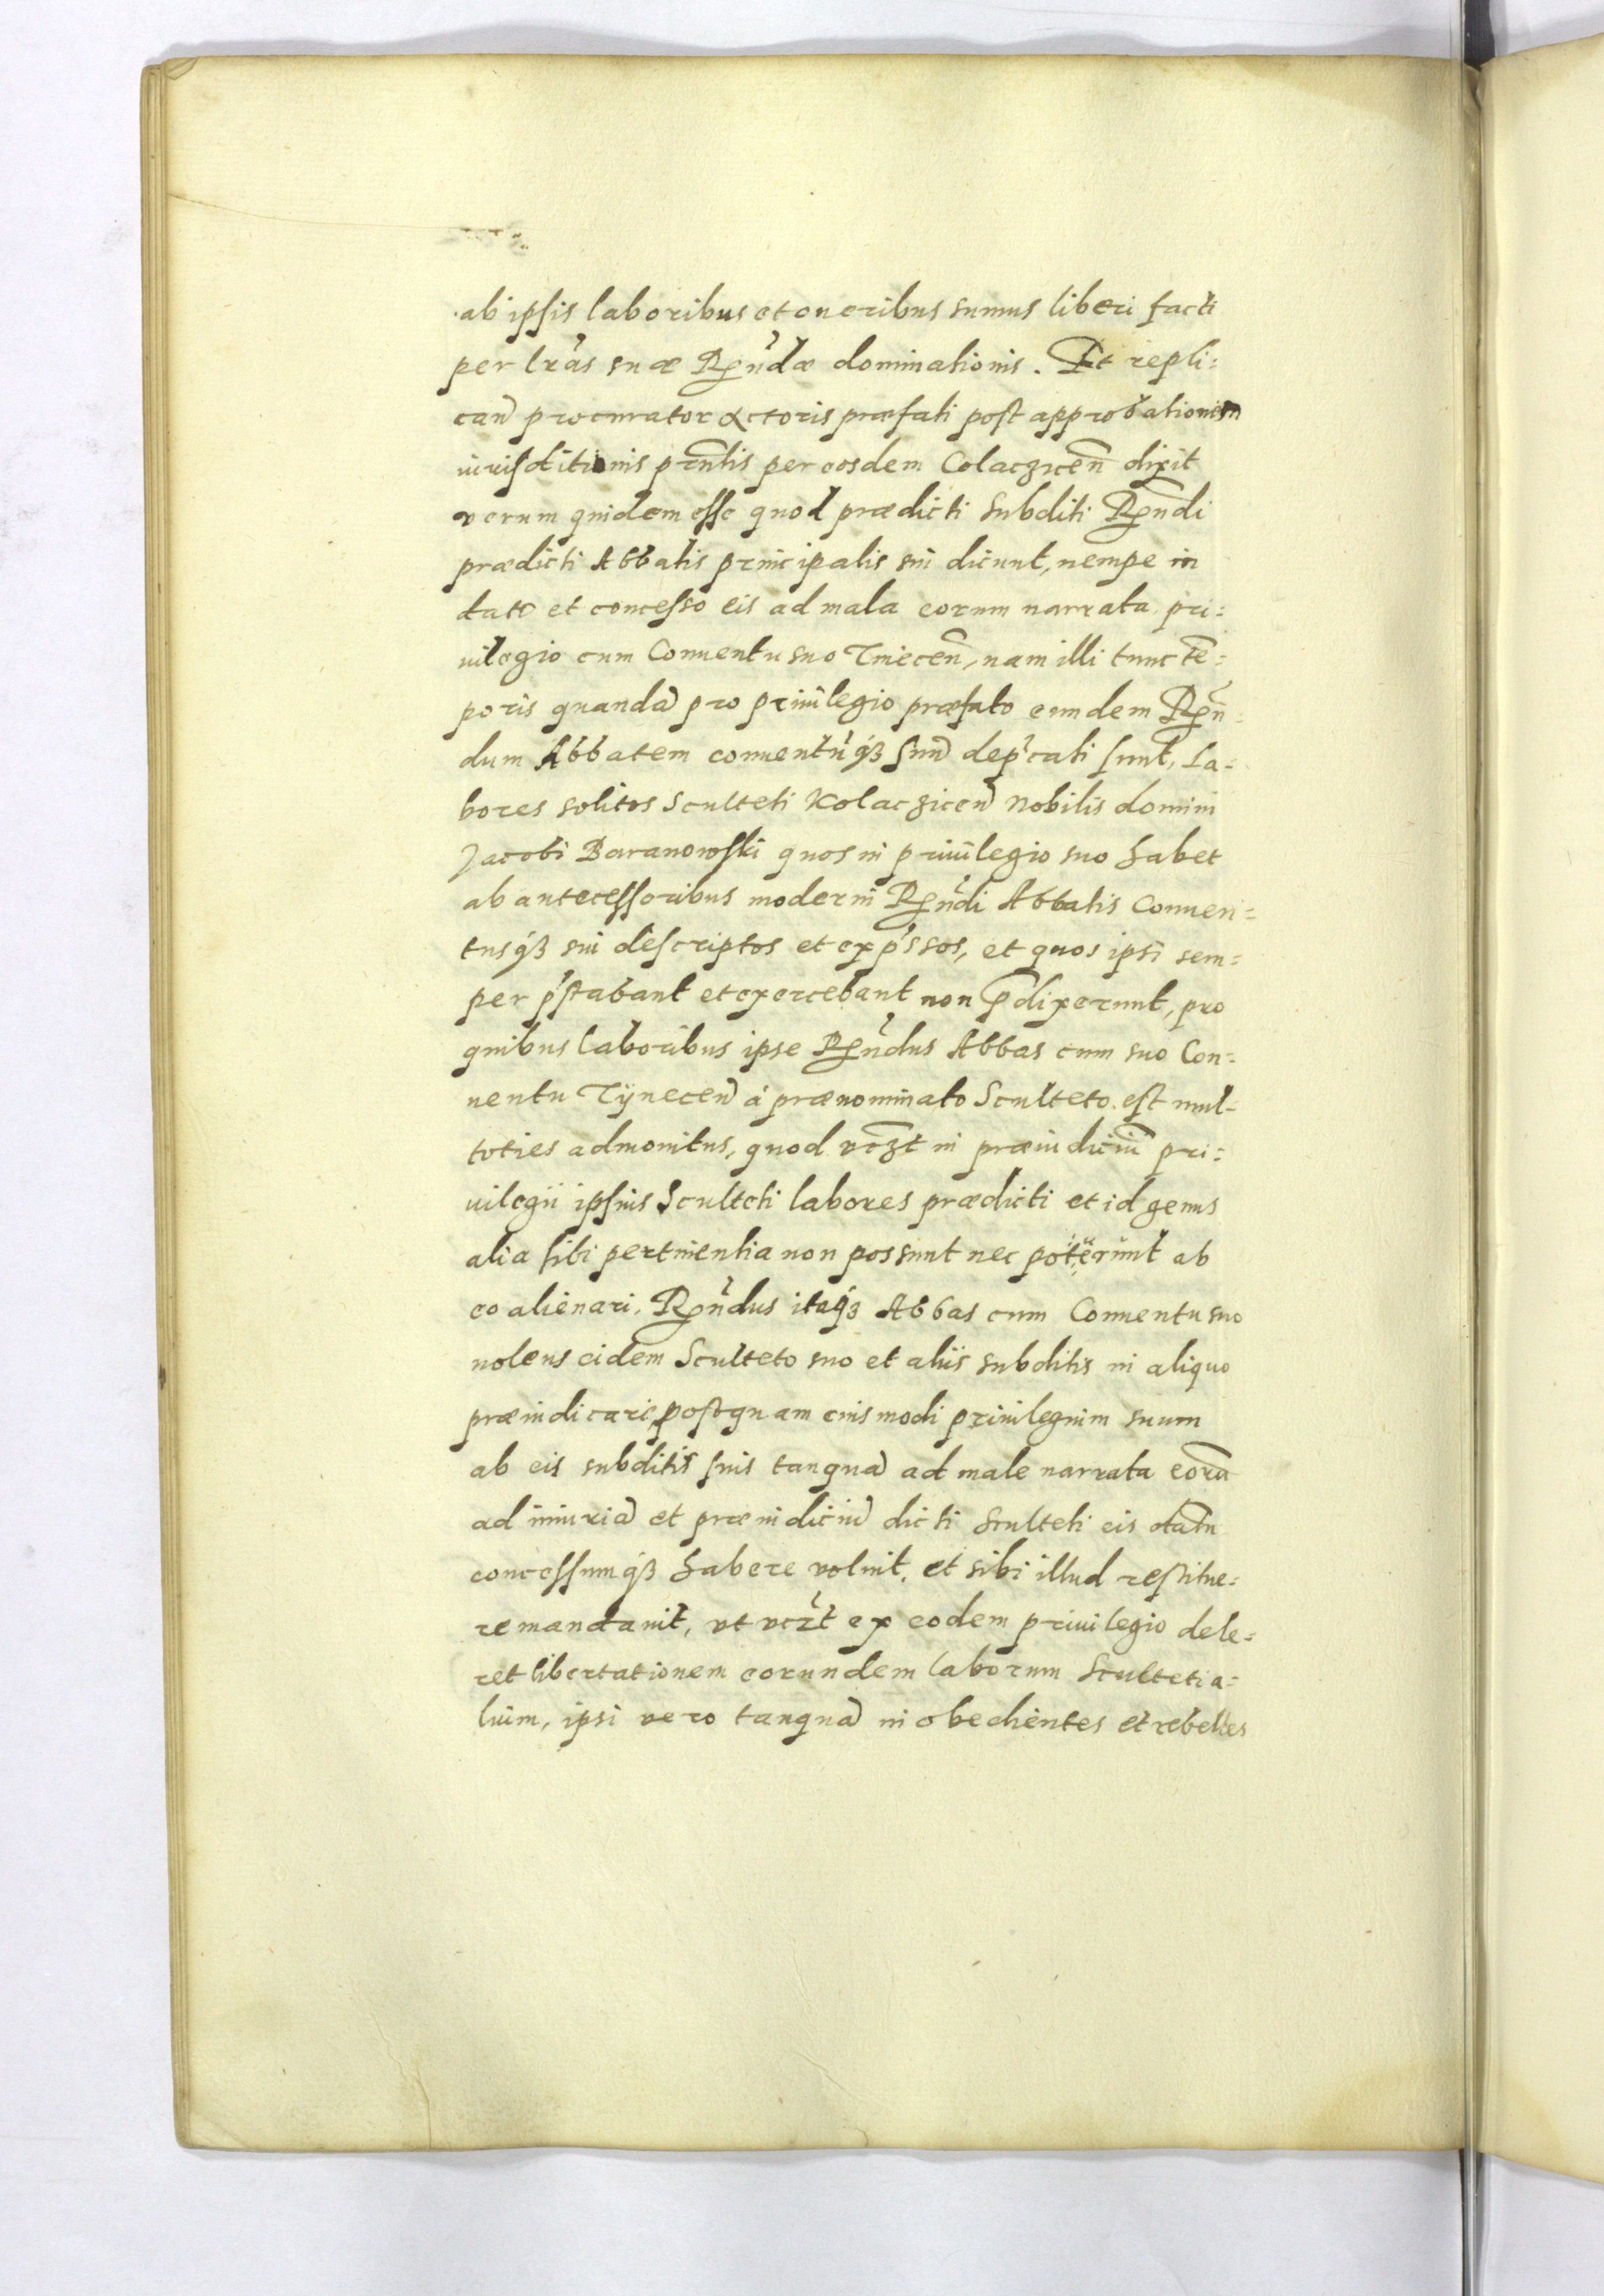 ab ipsis laboribus et oneribus sumus liberi facti
per lras suæ Rndæ dominationis. Et repli=
can procurator actoris præfati post approbationem
iurisditionis prntis per eosdem Colaczicen dixit
verum quidem esse quod prædicti subditi Rndi
prædicti Abbatis principalis sui dicunt, nempe in
dato et concesso eis ad mala eorum narrata pri=
uilegio cum Conuentu suo Tniecen, nam illi tunc te=
poris quanda pro priuilegio præfato eundem Rn=
dum Abbatem conuentuqz suu depcati sunt, la=
bores solitos Sculteti Kolaczicen Nobilis domini
Jacobi Baranowski quos in priuilegio suo habet
ab antecessoribus moderni Rndi Abbatis Conuen=
tusqz sui descriptos et expssos, et quos ipsi sem=
per pstabant et exercebant non pdixerunt, pro
quibus laboribus ipse Rndus Abbas cum suo Con=
uentu Tÿnecen á prænominato Sculteto est mul=
toties admonitus, quod vczt in præiudiciu pri=
uilegii ipsius Sculteti labores prædicti et id genus
alia sibi pertinentia non possunt nec poterunt ab
eo alienari. Rndus itaqz Abbas cum Conuentu suo
nolens eidem Sculteto suo et aliis subditis in aliquo
præiudicari, postquam eiusmodi priuilegium suum
ab eis subditis suis tanqua ad male narrata eoru
ad iniuria et præiudiciu dicti Sculteti eis datu
concessumqz habere voluit, et sibi illud restitue=
re mandauit, vt vczt ex eodem priuilegio dele=
ret libertationem eorundem laborum Scultetia=
lium, ipsi vero tanqua inobedientes et rebelles